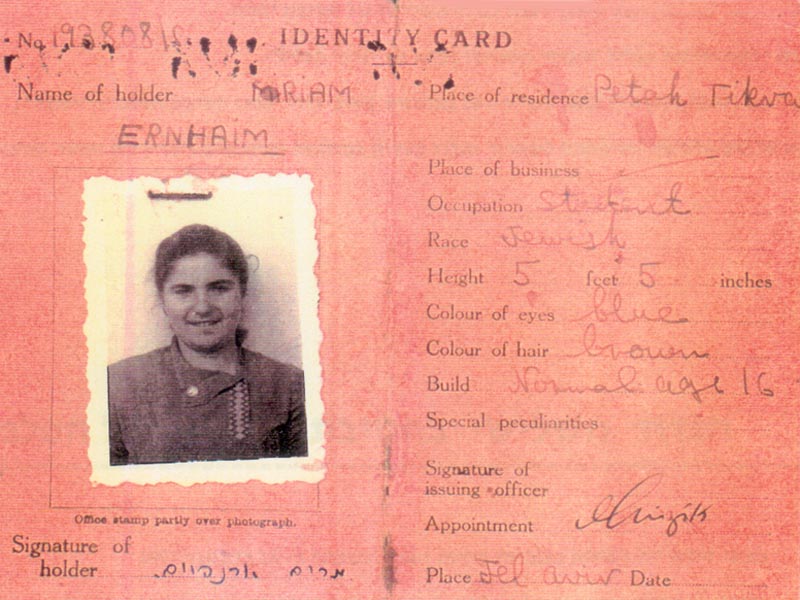 No 193808/
IDENTITY CARD
Name of holder MIRIAM
ERNHAIM
Office stamp partly over photograph.
Signature of
holder מרים ארנהיים
Place of residence Petah Tikva
Place of business
Occupation Student
Race Jewish
Height 5 feet 5 inches
Colour of eyes blue
Colour of hair brown
Build Normal age 16
Special peculiarities
Signature of
issuing officer
Appointment
Place Tel aviv Date